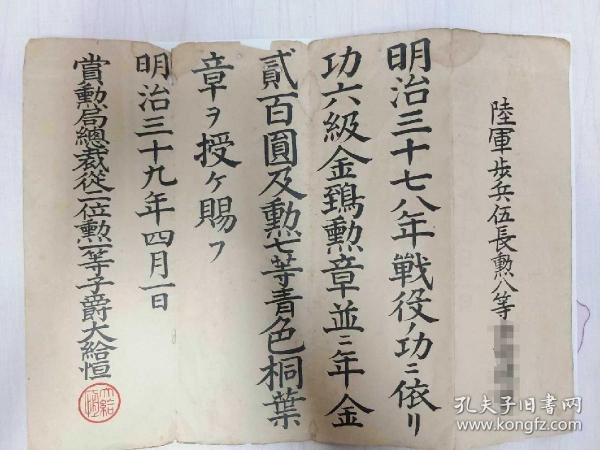 陸軍歩兵伍長勲八等
明治三十七八年戰役ノ功ニ依リ
功六級金鵄勲章並ニ年金
貳百圓及勲七等青色桐葉
章ヲ授ケ賜フ
明治三十九年四月一日
賞勲局總裁從二位勲一等子爵大給恒
大給恒
孔夫子旧书网
www.kongfz.com